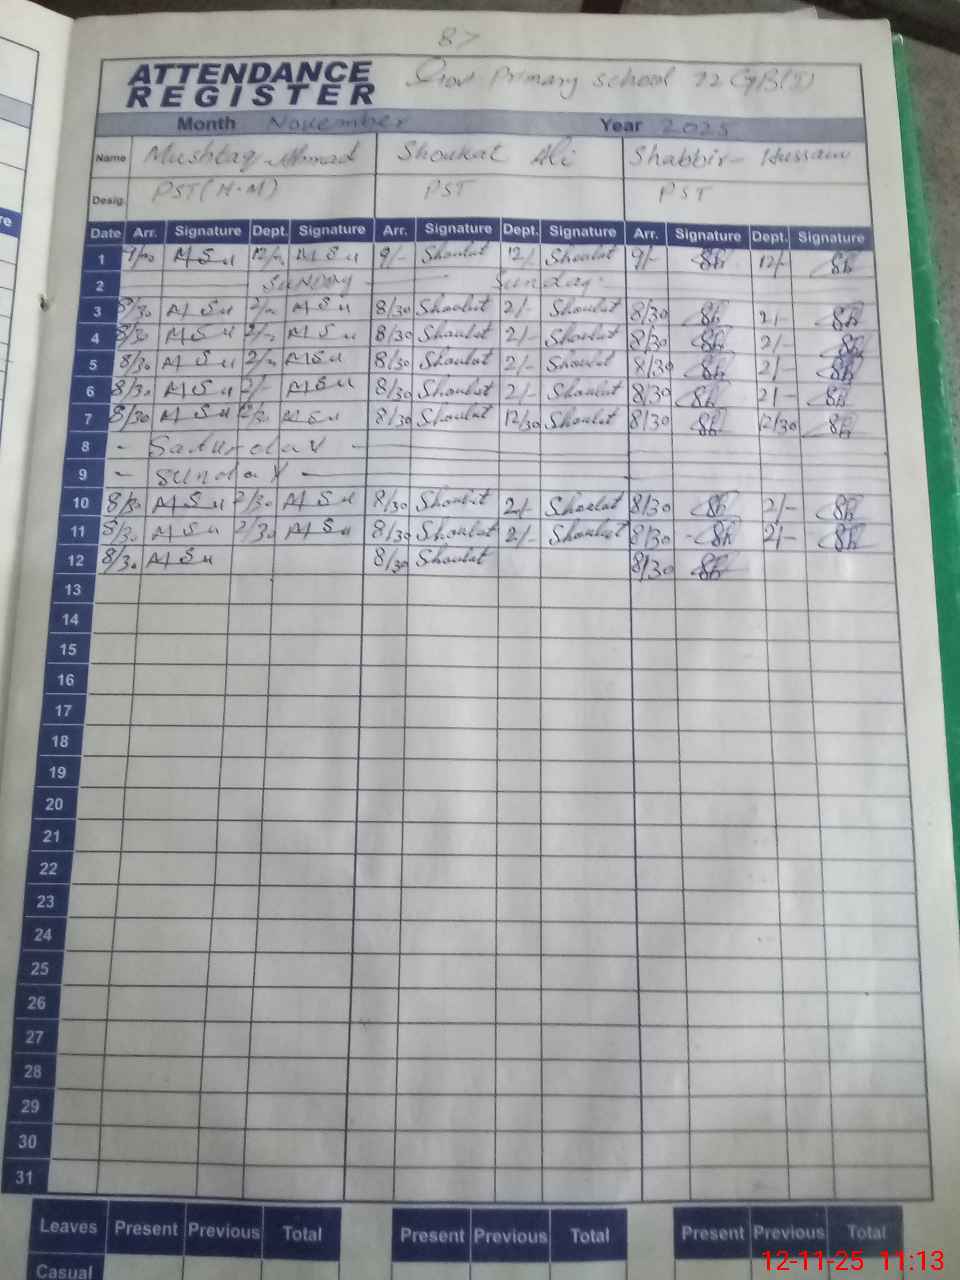 87
ATTENDANCE
REGISTER
Govt Primary school 22 GB(I)
Month November Year 2025
Name Mushtaq Ahmad Shoukat Ali Shabbir Hussain
Desig. PST (H.M) PST PST
Date Arr. Signature Dept. Signature Arr. Signature Dept. Signature Arr. Signature Dept. Signature
1 9/- Shoukat 12/- Shoukat 9/- Sh 12/- Sh
2 Sunday Sunday
3 8/30 2/- 8/30 Shoukat 2/- Shoukat 8/30 Sh 2/- Sh
4 8/30 2/- 8/30 Shoukat 2/- Shoukat 8/30 Sh 2/- Sh
5 8/30 2/- 8/30 Shoukat 2/- Shoukat 8/30 Sh 2/- Sh
6 8/30 2/- 8/30 Shoukat 2/- Shoukat 8/30 Sh 2/- Sh
7 8/30 8/30 Shoukat 12/30 Shoukat 8/30 Sh 12/30 Sh
8 - Saturday -
9 - Sunday -
10 8/30 2/30 8/30 Shoukat 2/- Shoukat 8/30 Sh 2/- Sh
11 8/30 2/30 8/30 Shoukat 2/- Shoukat 8/30 Sh 2/- Sh
12 8/30 8/30 Shoukat 8/30 Sh
13
14
15
16
17
18
19
20
21
22
23
24
25
26
27
28
29
30
31
Leaves Present Previous Total Present Previous Total Present Previous Total
Casual
12-11-25 11:13